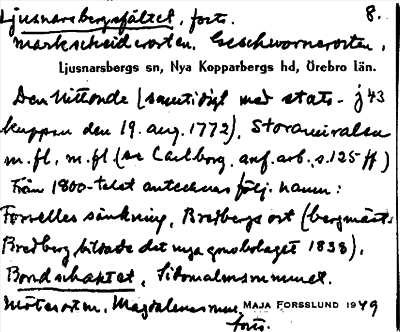 Ljusnarsbergsfältet, forts. 8.
Markscheiderorten, Geschwornerorten,
Ljusnarsbergs sn, Nya Kopparbergs hd, Örebro län.
Den Nittonde (samtidigt med stats- j 43
kuppen den 19. aug. 1772), Storamiralsu
m.fl., m.fl (se Carlborg, anf. arb. s. 125 ff)
Från 1800-talet antecknas följ. namn:
Forselles sänkning, Bredbergs ort (bergmäst.
Bredberg bildade det nya gruvbolaget 1838),
Bondschaktet,
Mötesorten, Magdalenas MAJA FORSSLUND 1949
forts.